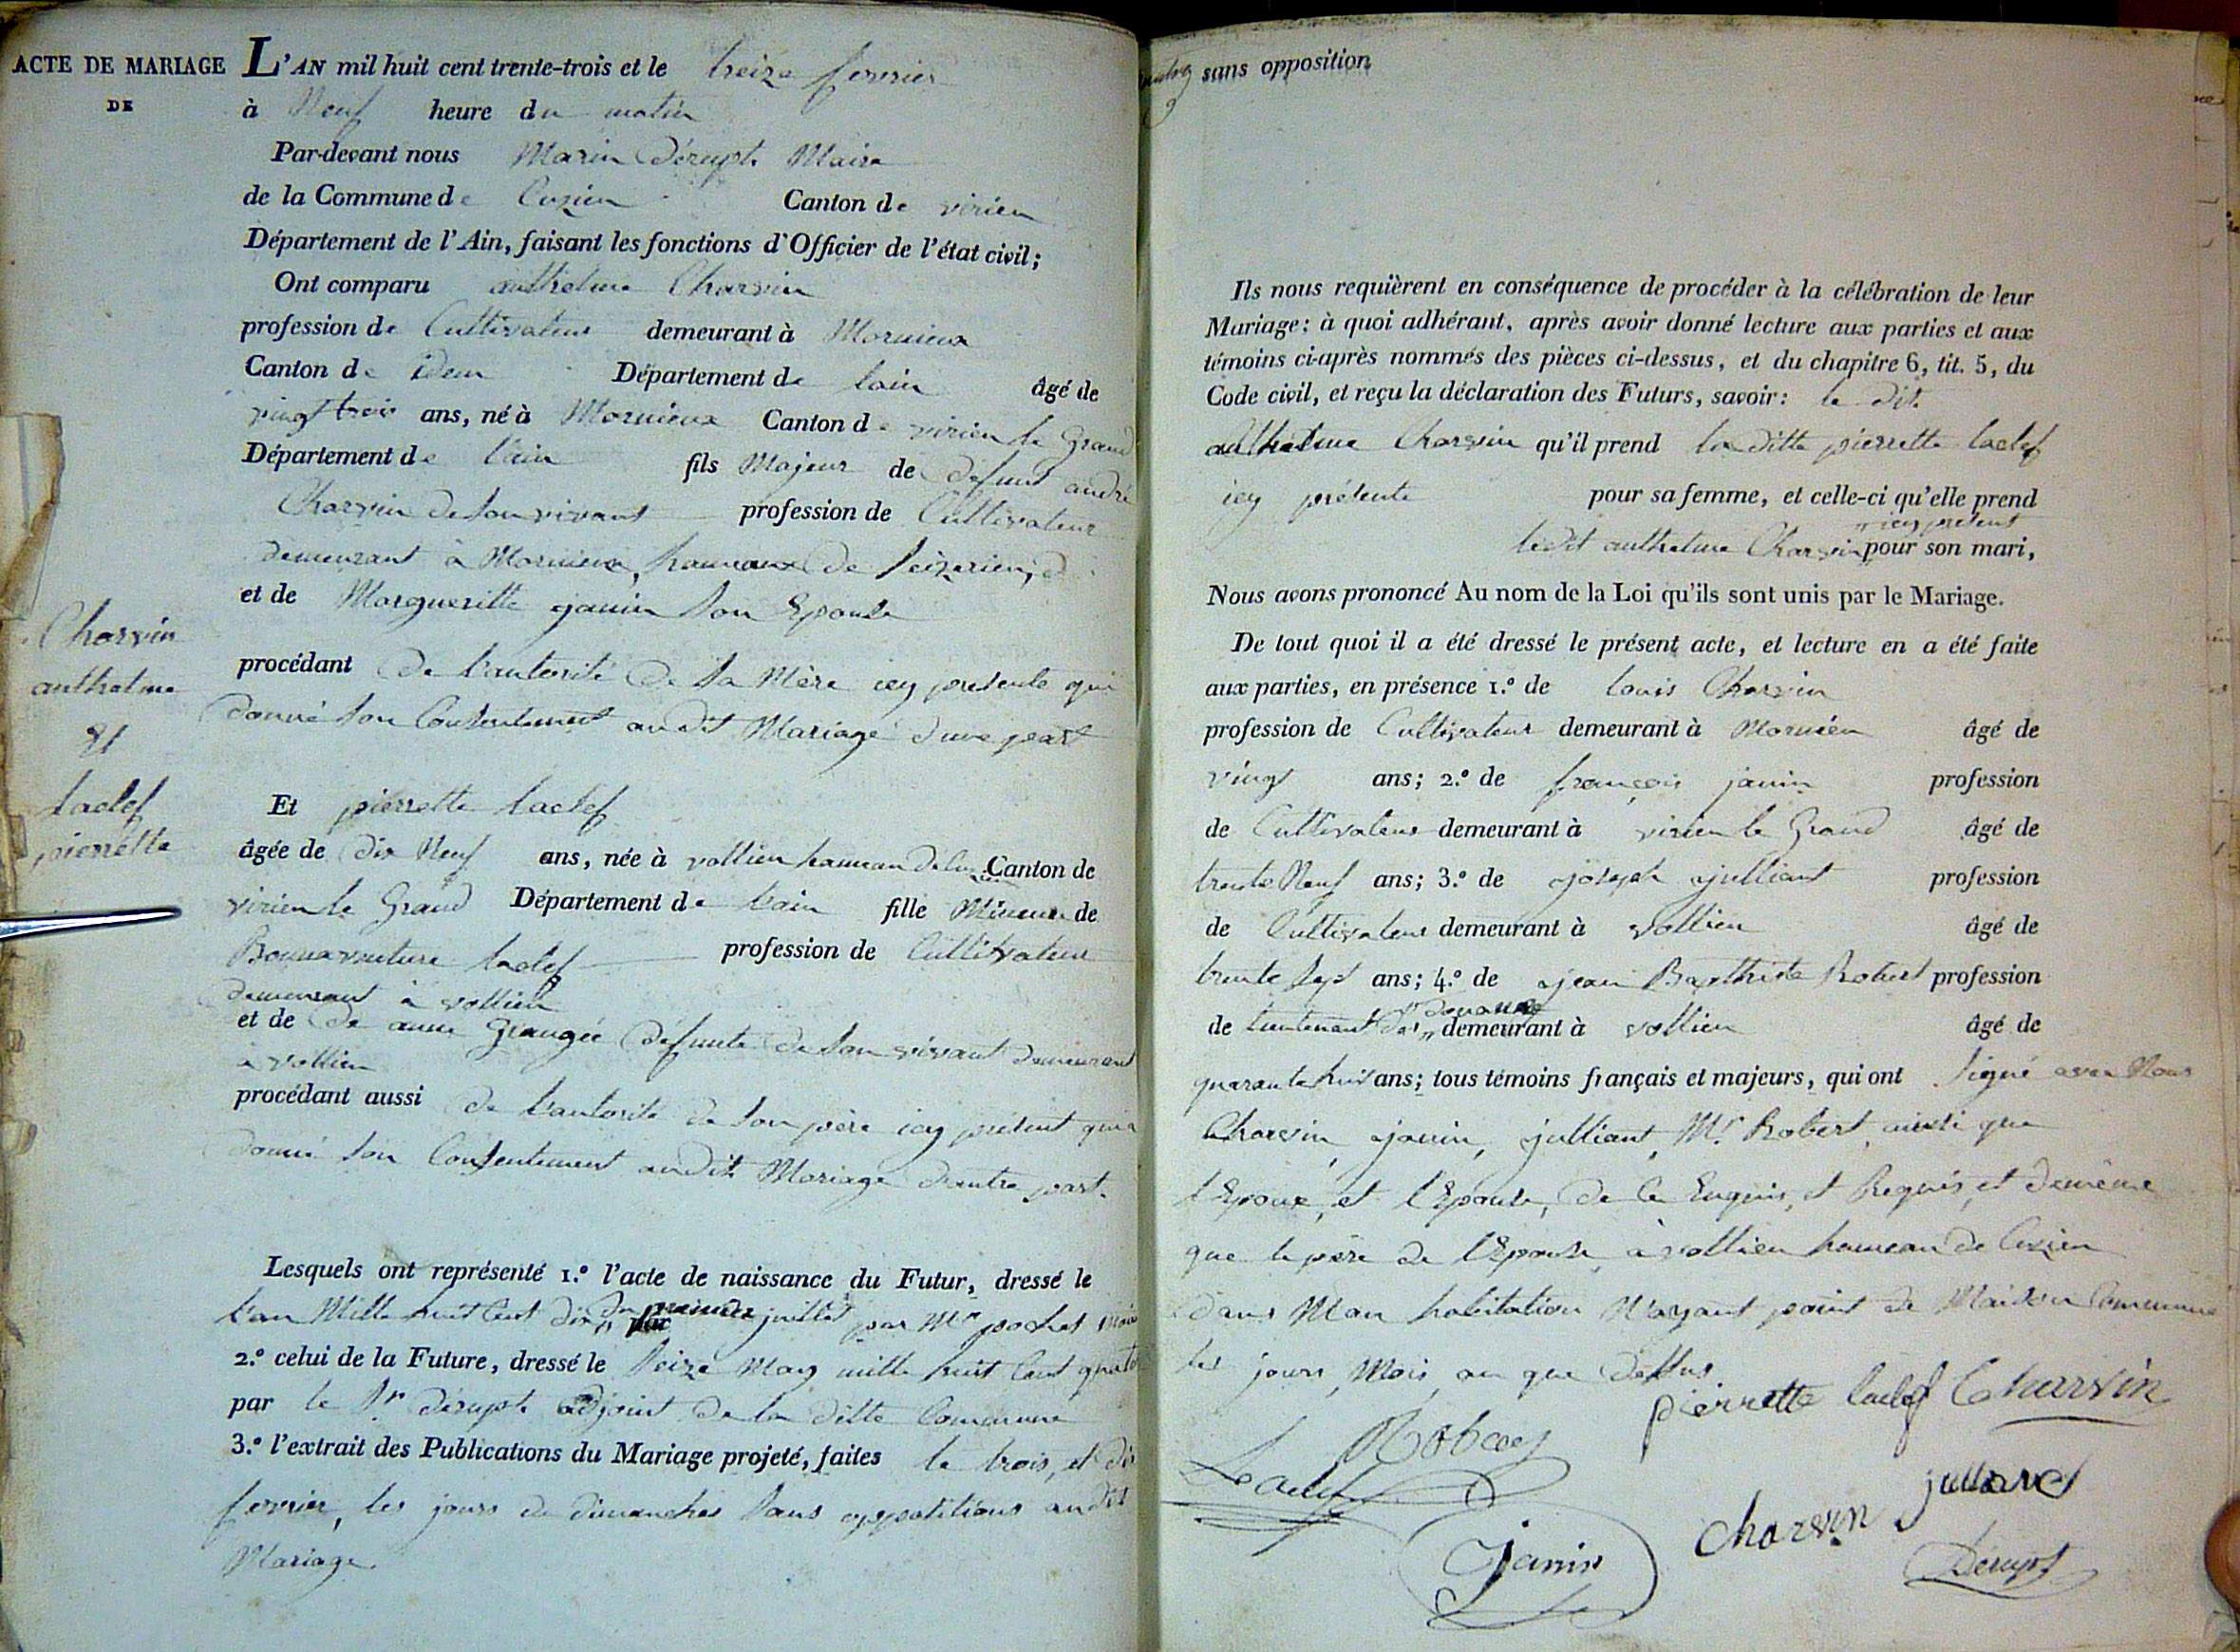 ACTE DE MARIAGE
DE
Charvin
anthelme
Et
laclef
pierrette
L'AN mil huit cent trente-trois et le treize fevrier
à Neuf heure du matin
Par-devant nous Marin Dérupt Maire
de la Commune de Cuzieu Canton de virieu
Département de l'Ain, faisant les fonctions d'Officier de l'état civil;
Ont comparu anthelme Charvin
profession de Cultivateur demeurant à Mornieux
Canton de idem Département de lain âgé de
vingt trois ans, né à Mornieux Canton de virieu le Grand
Département de l'ain fils Majeur de défunt andré
Charvin de son vivant profession de Cultivateur
demeurant à Mornieux, hameaux de
et de Margueritte janin son Epouse
procédant de l'autorité de sa Mère icy présente qui
donné son Consentement audit Mariage d'une part
Et pierrette laclef
âgée de dix Neuf ans, née à vollien hameau de Canton de
virieu le Grand Département de l'ain fille Mineure de
Bonnaventure laclef profession de Cultivateur
demeurant à vollien
et de de anne Grangée défunte de son vivant demeurant
à vollien
procédant aussi de l'autorité de son père icy présent qui a
donné son Consentement audit Mariage d'autre part.
Lesquels ont représenté 1.º l'acte de naissance du Futur, dressé le
l'an Mille huit Cent dix du premier juillet par Mr pochet
2.º celui de la Future, dressé le seize May mille huit Cent
par le Sr dérupt adjoint de la ditte Commune
3.º l'extrait des Publications du Mariage projeté, faites le trois, et dix
fevrier, les jours de dimanches sans oppositions audit
Mariage.
sans opposition
Ils nous requièrent en conséquence de procéder à la célébration de leur
Mariage: à quoi adhérant, après avoir donné lecture aux parties et aux
témoins ci-après nommés des pièces ci-dessus, et du chapitre 6, tit. 5, du
Code civil, et reçu la déclaration des Futurs, savoir: le dit
anthelme Charvin qu'il prend la ditte pierrette laclef
icy présente pour sa femme, et celle-ci qu'elle prend
icy présent
ledit anthelme Charvin pour son mari,
Nous avons prononcé Au nom de la Loi qu'ils sont unis par le Mariage.
De tout quoi il a été dressé le présent acte, et lecture en a été faite
aux parties, en présence 1.º de louis Charvin
profession de Cultivateur demeurant à Mornieu âgé de
vingt ans; 2.º de françois janin profession
de Cultivateur demeurant à virieu le Grand âgé de
trente Neuf ans; 3.º de joseph julliant profession
de Cultivateur demeurant à vollien âgé de
trente sept ans; 4.º de jean Bapthiste Robert profession
douane
de lieutenant des demeurant à vollien âgé de
quarante huit ans; tous témoins français et majeurs, qui ont signé avec Nous
Charvin, janin, julliant, Mr Robert, ainsi que
l'Epoux, et l'Epouse, de Ce Enquis, et Requis, et de même
que le père de l'Epouse, à vollien hameau de Cuzieu
dans Mon habitation N'ayant point de Maison Commune
les jours, Mois, an que dessus.
pierrette laclef Charvin
Robert
Laclef
Janin
Charvin
julliard
Dérupt